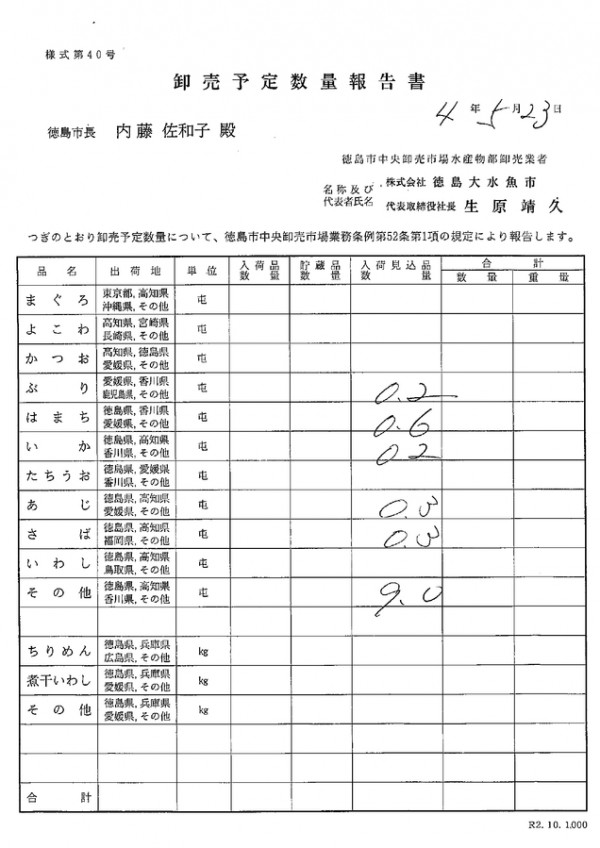 様式第40号
卸売予定数量報告書
4年5月23日
徳島市長 内藤 佐和子 殿
徳島市中央卸売市場水産物部卸売業者
名称及び 株式会社 徳島大水魚市
代表者氏名 代表取締役社長 生原靖久
つぎのとおり卸売予定数量について、徳島市中央卸売市場業務条例第52条第1項の規定により報告します。
品名 出荷地 単位 入荷品数量 貯蔵品数量 入荷見込品数量 合計 数量 重量
まぐろ 東京都,高知県 沖縄県,その他 屯
よこわ 高知県,宮崎県 長崎県,その他 屯
かつお 高知県,徳島県 愛媛県,その他 屯
ぶり 愛媛県,香川県 鹿児島県,その他 屯 0.2
はまち 徳島県,香川県 愛媛県,その他 屯 0.6
いか 徳島県,高知県 香川県,その他 屯 0.2
たちうお 徳島県,愛媛県 香川県,その他 屯
あじ 徳島県,高知県 愛媛県,その他 屯 0.3
さば 徳島県,高知県 福岡県,その他 屯 0.3
いわし 徳島県,高知県 鳥取県,その他 屯
その他 徳島県,高知県 香川県,その他 屯 9.0
ちりめん 徳島県,兵庫県 広島県,その他 kg
煮干いわし 徳島県,兵庫県 愛媛県,その他 kg
その他 徳島県,兵庫県 愛媛県,その他 kg
合計
R2.10.1,000